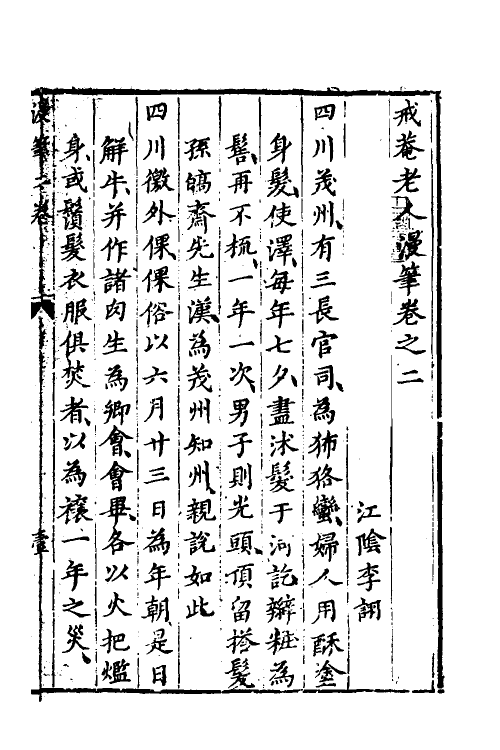 戒菴老人漫筆卷之二
江陰李詡
四川茂州、有三長官司、為狒狢蠻、婦人用酥塗
身髮、使澤、每年七夕、盡沐髮于河、訖辮粧為
髻、再不梳、一年一次、男子則光頭、頂留搭髮
孫皜齋先生漢、為茂州知州、親說如此
四川徼外倮倮俗以六月廿三日為年朝、是日
解牛、并作諸肉生為鄉會、會畢、各以火把爁
身、或鬚髮衣服俱焚者、以為禳一年之災、
漫筆之卷
壹